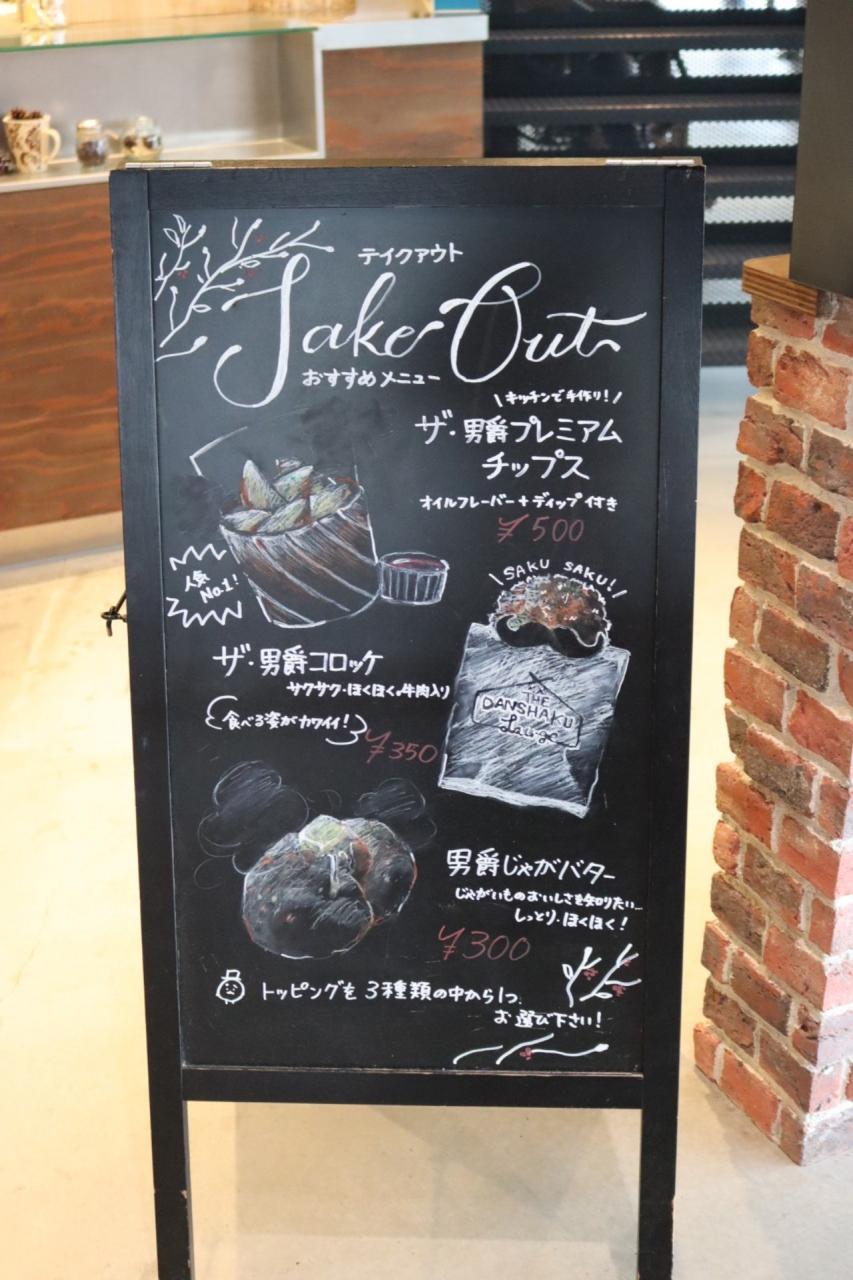 テイクアウト
Take Out
おすすめメニュー
\キッチンで手作り!/
ザ・男爵プレミアム
チップス
オイルフレーバー+ディップ付き
¥500
人気
No.1!
\SAKU SAKU!!/
ザ・男爵コロッケ
サクサク・ほくほく。牛肉入り
食べる姿がカワイイ!
¥350
THE
DANSHAKU
Lounge
男爵じゃがバター
じゃがいものおいしさを知りたい…
しっとり・ほくほく!
¥300
トッピングを3種類の中から1つ、
お選び下さい!